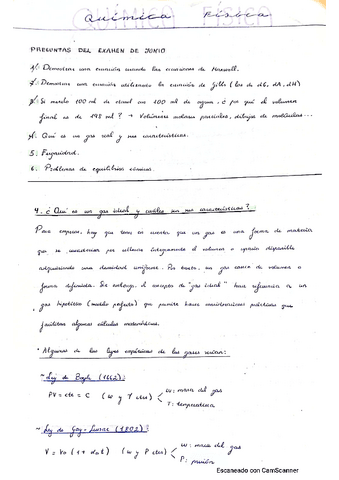 QUÍMICA FÍSICA
PREGUNTAS DEL EXAMEN DE JUNIO
1. Demostrar una ecuación usando las ecuaciones de Maxwell.
2. Demostrar una ecuación utilizando la ecuación de Gibbs (las de dG, dA, dH)
3. Si mezclo 100 ml de etanol con 100 ml de agua, ¿por qué el volumen
final es de 198 ml? → Volúmenes molares parciales, dibujos de moléculas...
4. Qué es un gas real y sus características.
5. Fugacidad.
6. Problemas de equilibrios químicos.
4. ¿Qué es un gas ideal y cuáles son sus características?
Para empezar, hay que tener en cuenta que un gas es una forma de materia
que se caracteriza por rellenar íntegramente el volumen o espacio disponible
adquiriendo una densidad uniforme. Por tanto, un gas carece de volumen o
forma definida. Sin embargo, el concepto de "gas ideal" hace referencia a un
gas hipotético (modelo perfecto) que permite hacer consideraciones prácticas que
facilitan algunos cálculos matemáticos.
* Algunas de las leyes empíricas de los gases serían:
~ Ley de Boyle (1662):
PV = cte = C (w y T ctes) w: masa del gas
T: temperatura
~ Ley de Gay-Lussac (1802):
V = Vo (1 + αt) (w y P ctes) w: masa del gas
P: presión
Escaneado con CamScanner